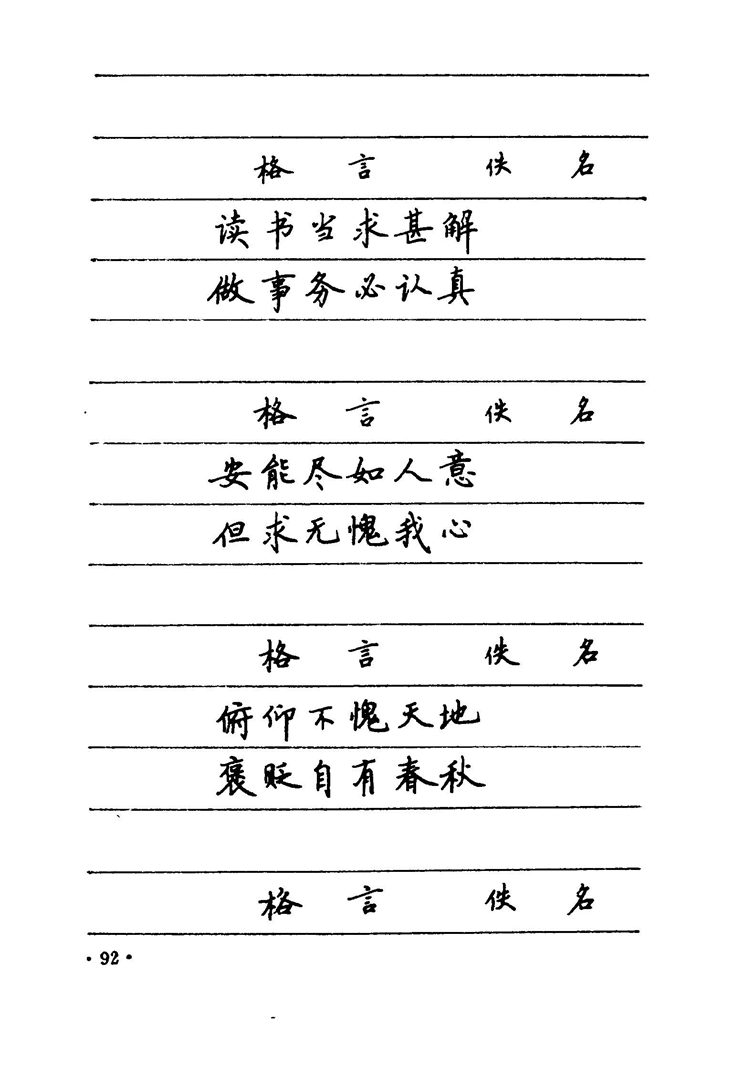 格言 佚名
读书当求甚解
做事务必认真
格言 佚名
安能尽如人意
但求无愧我心
格言 佚名
俯仰不愧天地
褒贬自有春秋
格言 佚名
·92·